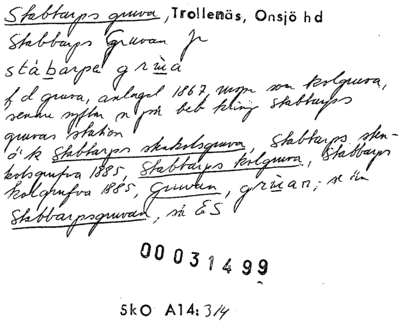 Stabbarps gruva, Trollenäs, Onsjö hd
Stabbarps Gruvan Jr
stábarpa grùa
f d gruva, anlagd 1867, urspr som kolgruva,
senare även n på beb kring Stabbarps
gruvas station
ö k Stabbarps stenkolsgruva, Stabbarps sten-
kolsgrufva 1885, Stabbarps kolgruva, Stabbarps
kolgrufva 1885, Gruvan, grùan; se även
Stabbarpsgruvan, så ES
00031499
SkO A14: 3/4